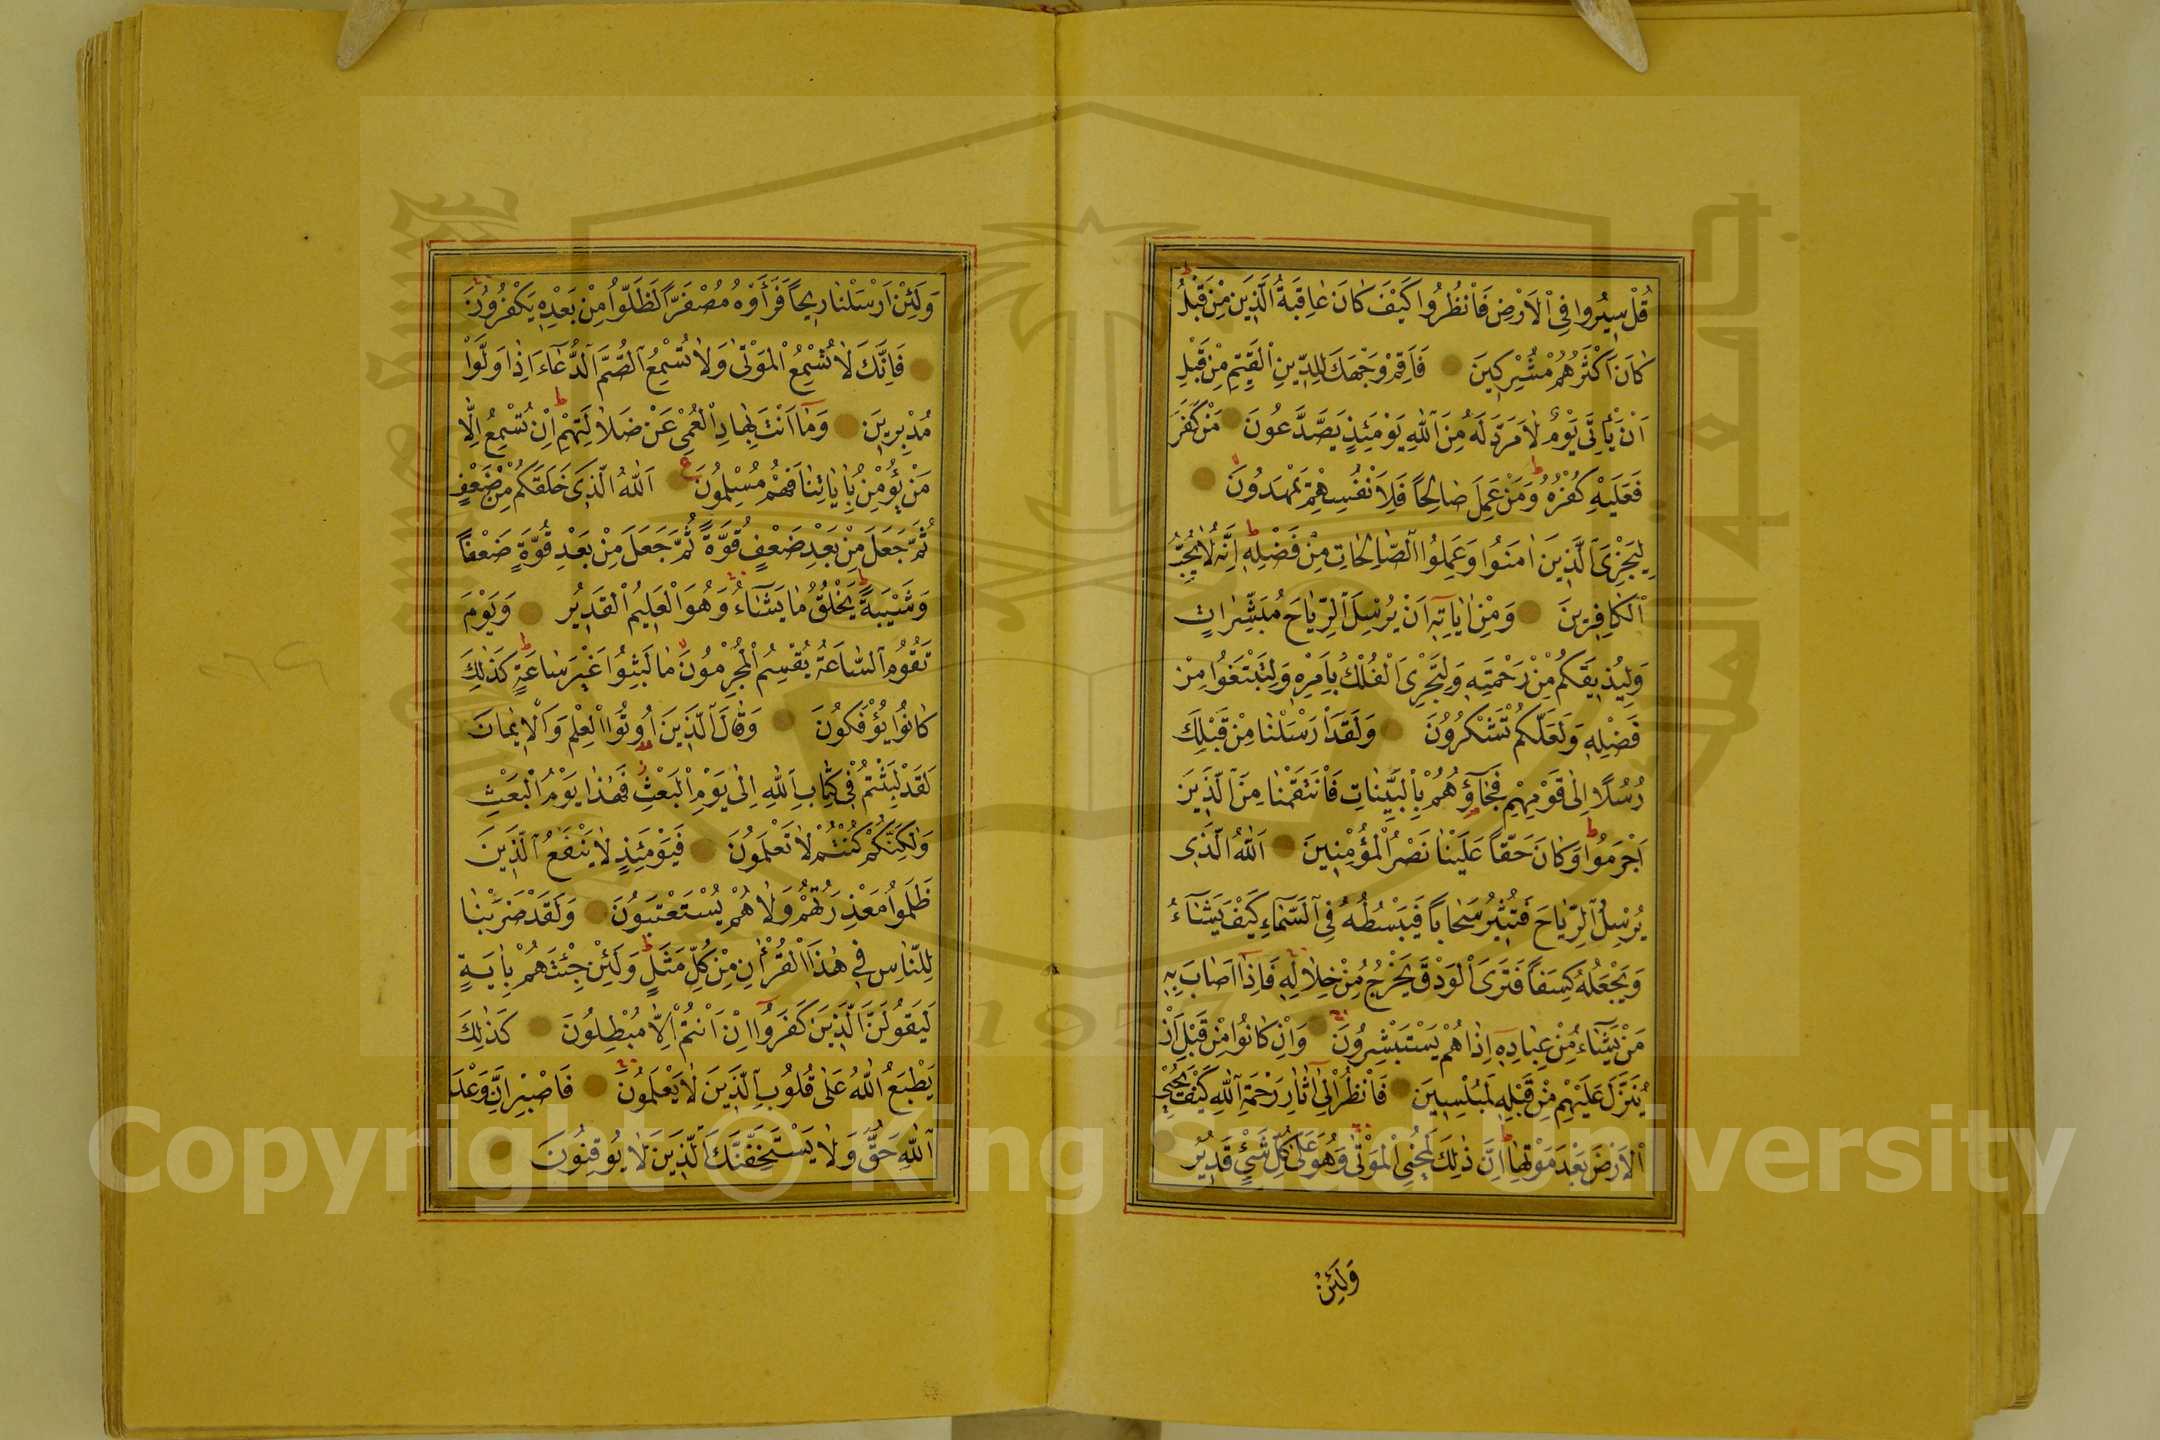 قُلْ سِيرُوا فِي الْاَرْضِ فَانْظُرُوا كَيْفَ كَانَ عَاقِبَةُ الَّذِينَ مِنْ قَبْلُ
كَانَ اَكْثَرُهُمْ مُشْرِكِينَ فَاَقِمْ وَجْهَكَ لِلدِّينِ الْقَيِّمِ مِنْ قَبْلِ
اَنْ يَأْتِيَ يَوْمٌ لَا مَرَدَّ لَهُ مِنَ اللّٰهِ يَوْمَئِذٍ يَصَّدَّعُونَ مَنْ كَفَرَ
فَعَلَيْهِ كُفْرُهُ وَمَنْ عَمِلَ صَالِحًا فَلِاَنْفُسِهِمْ يَمْهَدُونَ
لِيَجْزِيَ الَّذِينَ اٰمَنُوا وَعَمِلُوا الصَّالِحَاتِ مِنْ فَضْلِهِ اِنَّهُ لَا يُحِبُّ
الْكَافِرِينَ وَمِنْ اٰيَاتِهِ اَنْ يُرْسِلَ الرِّيَاحَ مُبَشِّرَاتٍ
وَلِيُذِيقَكُمْ مِنْ رَحْمَتِهِ وَلِتَجْرِيَ الْفُلْكُ بِاَمْرِهِ وَلِتَبْتَغُوا مِنْ
فَضْلِهِ وَلَعَلَّكُمْ تَشْكُرُونَ وَلَقَدْ اَرْسَلْنَا مِنْ قَبْلِكَ
رُسُلًا اِلٰى قَوْمِهِمْ فَجَاؤُهُمْ بِالْبَيِّنَاتِ فَانْتَقَمْنَا مِنَ الَّذِينَ
اَجْرَمُوا وَكَانَ حَقًّا عَلَيْنَا نَصْرُ الْمُؤْمِنِينَ اَللّٰهُ الَّذِي
يُرْسِلُ الرِّيَاحَ فَتُثِيرُ سَحَابًا فَيَبْسُطُهُ فِي السَّمَاءِ كَيْفَ يَشَاءُ
وَيَجْعَلُهُ كِسَفًا فَتَرَى الْوَدْقَ يَخْرُجُ مِنْ خِلَالِهِ فَاِذَا اَصَابَ بِهِ
مَنْ يَشَاءُ مِنْ عِبَادِهِ اِذَا هُمْ يَسْتَبْشِرُونَ وَاِنْ كَانُوا مِنْ قَبْلِ اَنْ
يُنَزَّلَ عَلَيْهِمْ مِنْ قَبْلِهِ لَمُبْلِسِينَ فَانْظُرْ اِلٰى اٰثَارِ رَحْمَةِ اللّٰهِ كَيْفَ يُحْيِ
الْاَرْضَ بَعْدَ مَوْتِهَا اِنَّ ذٰلِكَ لَمُحْيِي الْمَوْتٰى وَهُوَ عَلٰى كُلِّ شَيْءٍ قَدِيرٌ
وَلَئِنْ
وَلَئِنْ اَرْسَلْنَا رِيحًا فَرَأَوْهُ مُصْفَرًّا لَظَلُّوا مِنْ بَعْدِهِ يَكْفُرُونَ
فَاِنَّكَ لَا تُسْمِعُ الْمَوْتٰى وَلَا تُسْمِعُ الصُّمَّ الدُّعَاءَ اِذَا وَلَّوْا
مُدْبِرِينَ وَمَا اَنْتَ بِهَادِ الْعُمْيِ عَنْ ضَلَالَتِهِمْ اِنْ تُسْمِعُ اِلَّا
مَنْ يُؤْمِنُ بِاٰيَاتِنَا فَهُمْ مُسْلِمُونَ اَللّٰهُ الَّذِي خَلَقَكُمْ مِنْ ضَعْفٍ
ثُمَّ جَعَلَ مِنْ بَعْدِ ضَعْفٍ قُوَّةً ثُمَّ جَعَلَ مِنْ بَعْدِ قُوَّةٍ ضَعْفًا
وَشَيْبَةً يَخْلُقُ مَا يَشَاءُ وَهُوَ الْعَلِيمُ الْقَدِيرُ وَيَوْمَ
تَقُومُ السَّاعَةُ يُقْسِمُ الْمُجْرِمُونَ مَا لَبِثُوا غَيْرَ سَاعَةٍ كَذٰلِكَ
كَانُوا يُؤْفَكُونَ وَقَالَ الَّذِينَ اُوتُوا الْعِلْمَ وَالْاِيمَانَ
لَقَدْ لَبِثْتُمْ فِي كِتَابِ اللّٰهِ اِلٰى يَوْمِ الْبَعْثِ فَهٰذَا يَوْمُ الْبَعْثِ
وَلٰكِنَّكُمْ كُنْتُمْ لَا تَعْلَمُونَ فَيَوْمَئِذٍ لَا يَنْفَعُ الَّذِينَ
ظَلَمُوا مَعْذِرَتُهُمْ وَلَا هُمْ يُسْتَعْتَبُونَ وَلَقَدْ ضَرَبْنَا
لِلنَّاسِ فِي هٰذَا الْقُرْاٰنِ مِنْ كُلِّ مَثَلٍ وَلَئِنْ جِئْتَهُمْ بِاٰيَةٍ
لَيَقُولَنَّ الَّذِينَ كَفَرُوا اِنْ اَنْتُمْ اِلَّا مُبْطِلُونَ كَذٰلِكَ
يَطْبَعُ اللّٰهُ عَلٰى قُلُوبِ الَّذِينَ لَا يَعْلَمُونَ فَاصْبِرْ اِنَّ وَعْدَ
اللّٰهِ حَقٌّ وَلَا يَسْتَخِفَّنَّكَ الَّذِينَ لَا يُوقِنُونَ
Copyright © King Saud University
جامعة الملك سعود
King Saud University
1957